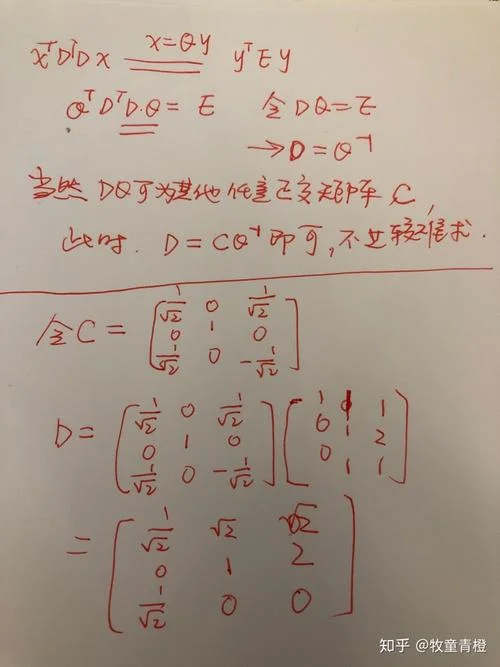 xᵀDᵀDx x=Qy yᵀEy
QᵀDᵀD·Q = E 令DQ=E
→D=Q⁻¹
当然 DQ可为其他任意正交矩阵C,
此时 D=CQ⁻¹即可,不过较难求.
令C= [1/√2 0 1/√2; 0 1 0; 1/√2 0 -1/√2]
D= [1/√2 0 1/√2; 0 1 0; 1/√2 0 -1/√2] [1 1 1; 0 1 2; 0 1 1]
= [1/√2 √2 √2; 0 1 2; 1/√2 0 0]
知乎 @牧童青橙